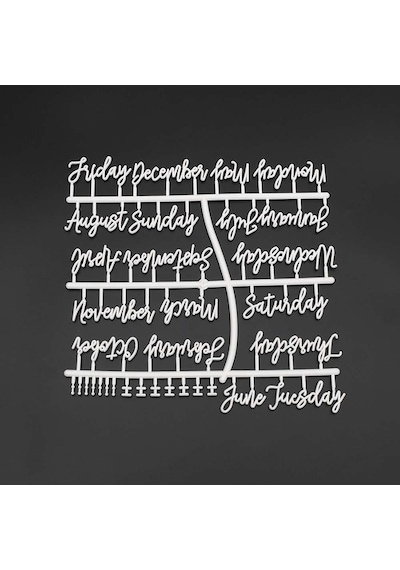 Friday December May Monday
August Sunday January July
September April Wednesday
November March Saturday
October February Thursday
June Tuesday